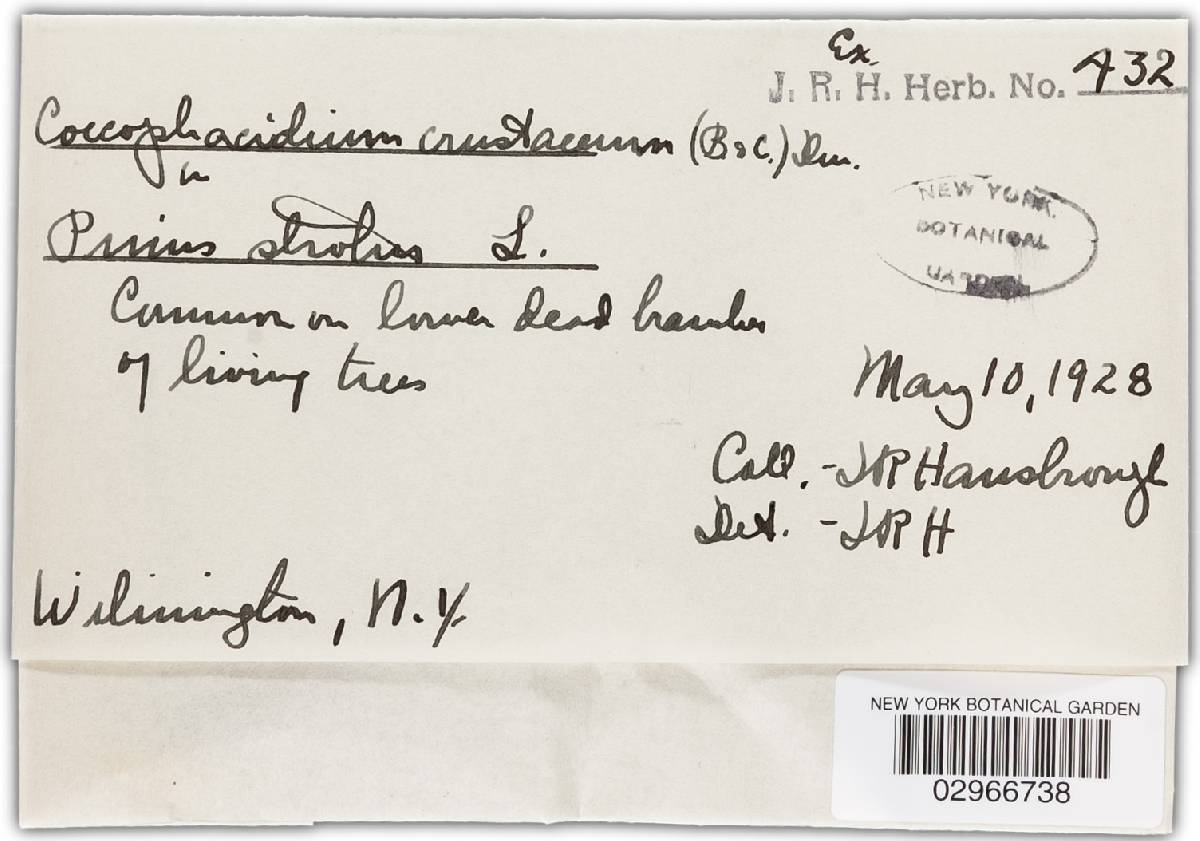 Ex.
J. R. H. Herb. No. 432
Coccophacidium crustaceum (B & C.)
on
Pinus strobus L.
NEW YORK
BOTANICAL
GARDEN
Common on lower dead branches
of living trees
May 10, 1928
Coll. - JR Hansbrough
Det. - JR H
Wilmington, N.Y.
NEW YORK BOTANICAL GARDEN
02966738